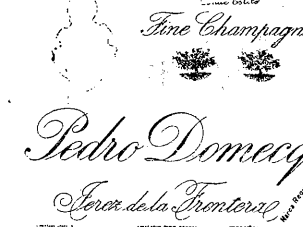 Fine Champagn
Pedro Domecq
Jerez de la Frontera,
Marca Reg